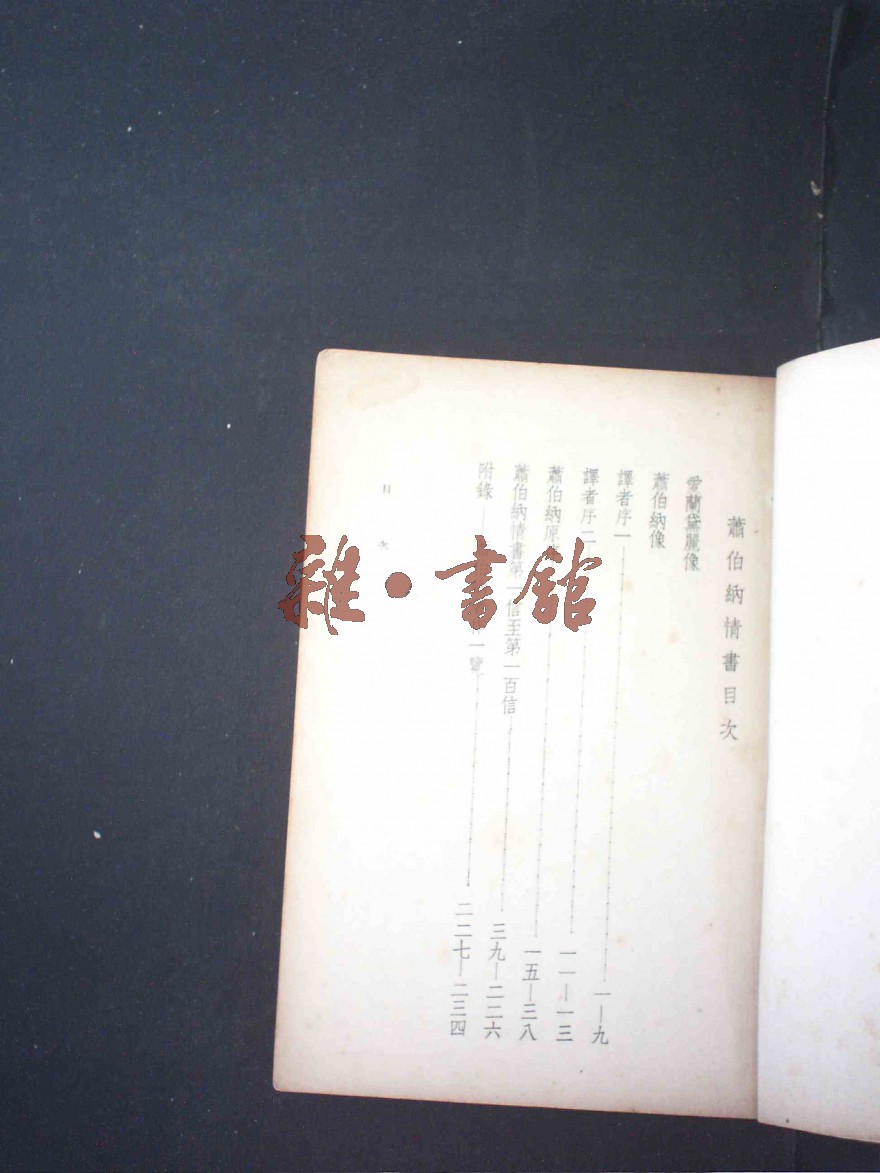 蕭伯納情書目次
愛蘭黛麗像
蕭伯納像
譯者序一——一—九
譯者序二——一一—一三
蕭伯納原——一五—三八
蕭伯納情書第一信至第一百信——三九—二二六
附錄——一覽——二二七—二三四
目次
雜·書館